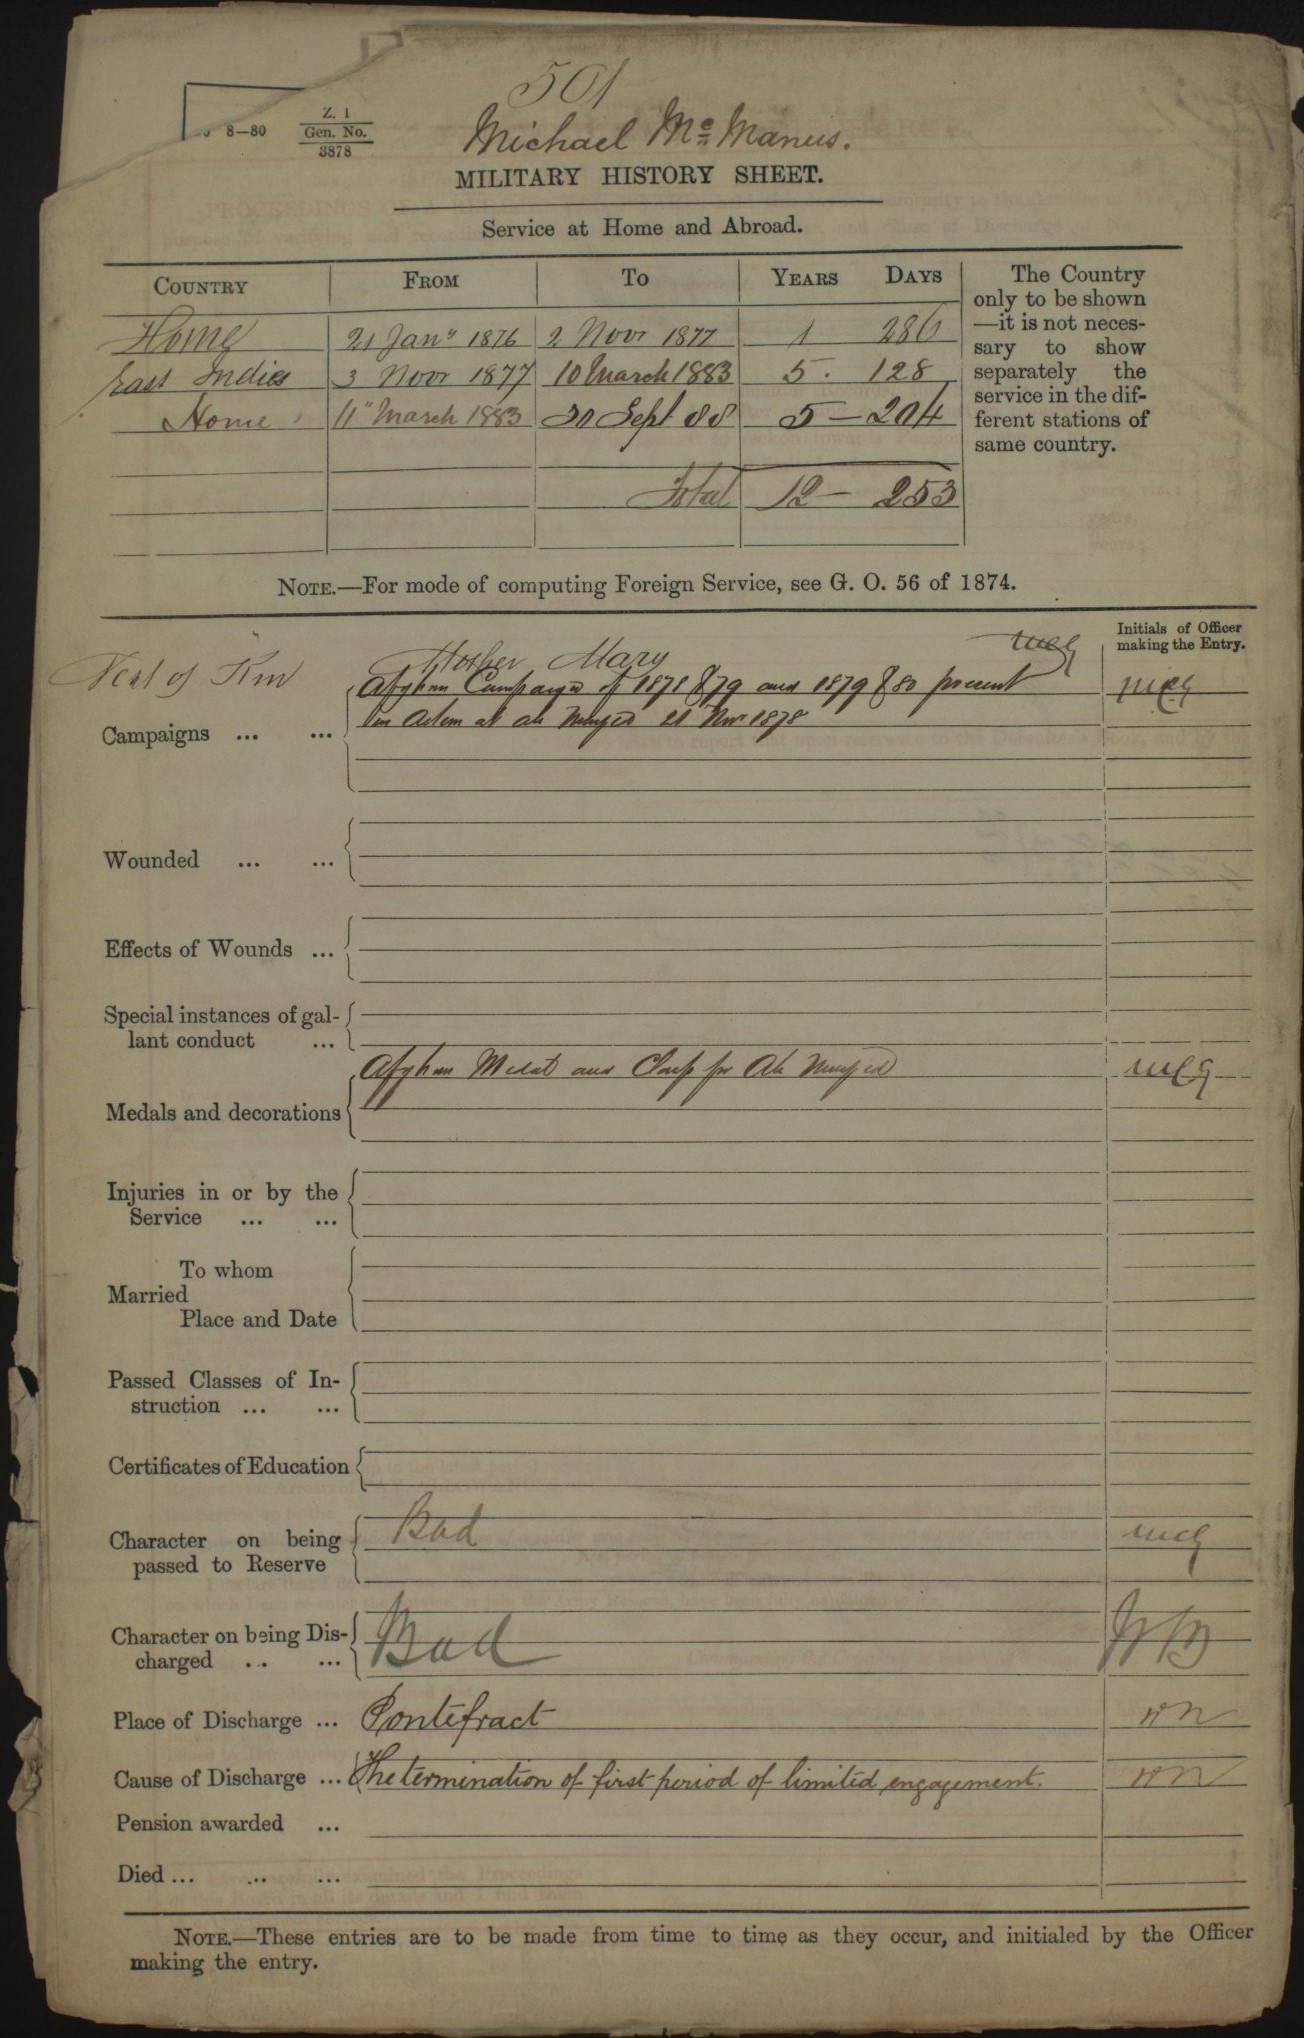 501
8—80
Z. 1
Gen. No.
3878
Michael Mc Manus.
MILITARY HISTORY SHEET.
Service at Home and Abroad.
COUNTRY FROM TO YEARS DAYS
Home 21 Jany 1876 2 Novr 1877 1 286
East Indies 3 Novr 1877 10 March 1883 5 . 128
Home 11" March 1883 30 Sept 88 5 — 204
Total 12 — 253
The Country
only to be shown
—it is not neces-
sary to show
separately the
service in the dif-
ferent stations of
same country.
NOTE.—For mode of computing Foreign Service, see G. O. 56 of 1874.
Initials of Officer
making the Entry.
Next of Kin Mother Mary
Afghan Campaign of 1878 & 79 and 1879 & 80 present
in Action at Ali Musjid 21 Novr 1878
Campaigns ... ...
Wounded ... ...
Effects of Wounds ...
Special instances of gal-
lant conduct ...
Afghan Medal and Clasp for Ali Musjid
Medals and decorations
Injuries in or by the
Service ... ...
To whom
Married
Place and Date
Passed Classes of In-
struction ... ...
Certificates of Education
Character on being
passed to Reserve
Bad
Character on being Dis-
charged .. ...
Bad
Place of Discharge ... Pontefract
Cause of Discharge ... The termination of first period of limited engagement.
Pension awarded ...
Died ... .. ...
NOTE.—These entries are to be made from time to time as they occur, and initialed by the Officer
making the entry.